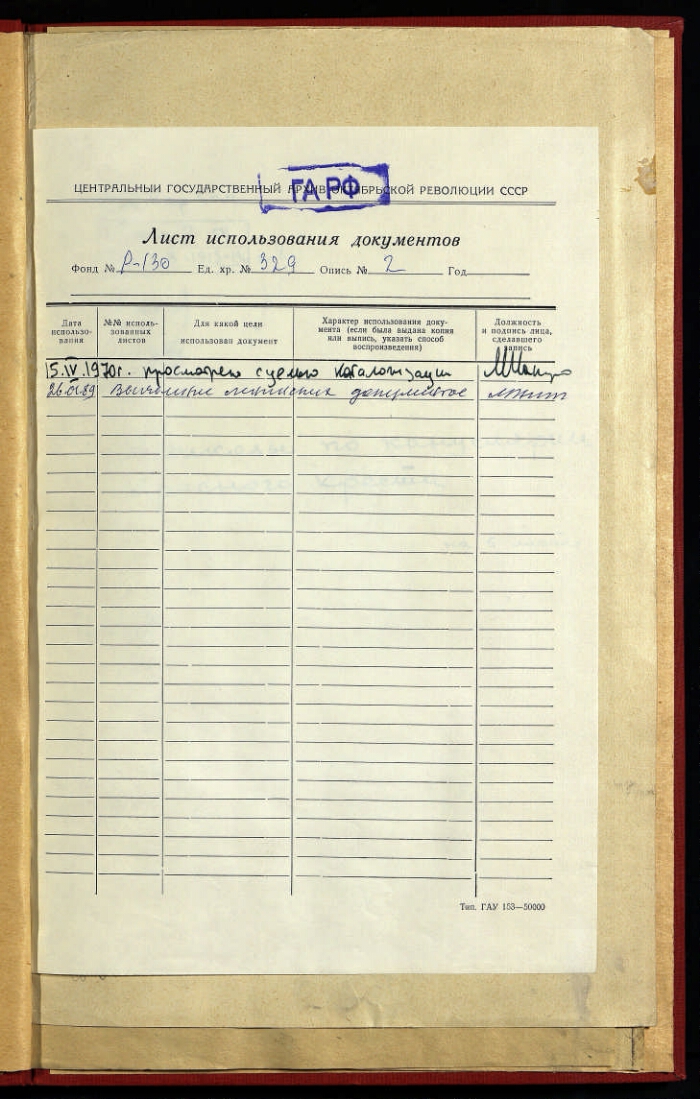 ЦЕНТРАЛЬНЫЙ ГОСУДАРСТВЕННЫЙ АРХИВ ОКТЯБРЬСКОЙ РЕВОЛЮЦИИ СССР
ГА РФ
Лист использования документов
Фонд № Р-130 Ед. хр. № 329 Опись № 2 Год
Дата использования
№№ использованных листов
Для какой цели использован документ
Характер использования документа (если была выдана копия или выпись, указать способ воспроизведения)
Должность и подпись лица, сделавшего запись
15.IV.1970г. просмотрено с целью каталогизации
Выявление ленинских документов
Тип. ГАУ 153—50000